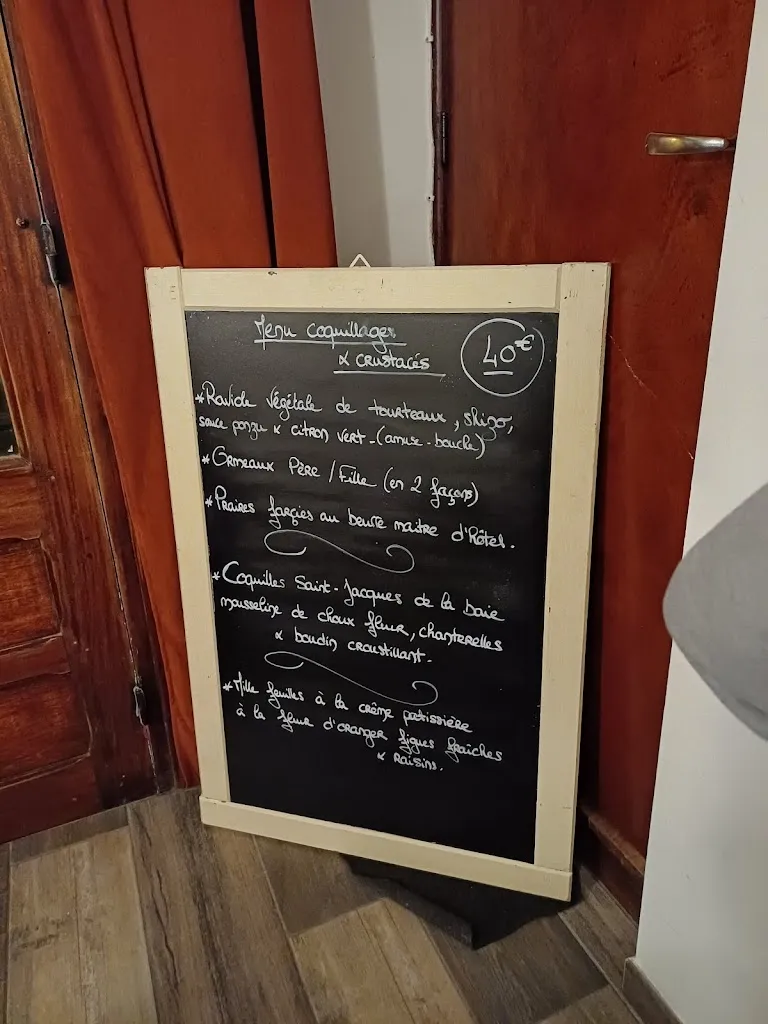 Menu coquillages
& crustacés
40€
* Raviole végétale de tourteaux, shizo,
sauce ponzu & citron vert - (amuse-bouche)
* Ormeaux Père / Fille (en 2 façons)
* Praires farcies au beurre maitre d'Hôtel.
* Coquilles Saint-Jacques de la baie
mousseline de choux fleur, chanterelles
& boudin croustillant.
* Mille feuilles à la crème patissière
à la fleur d'oranger figues fraîches
& raisins.